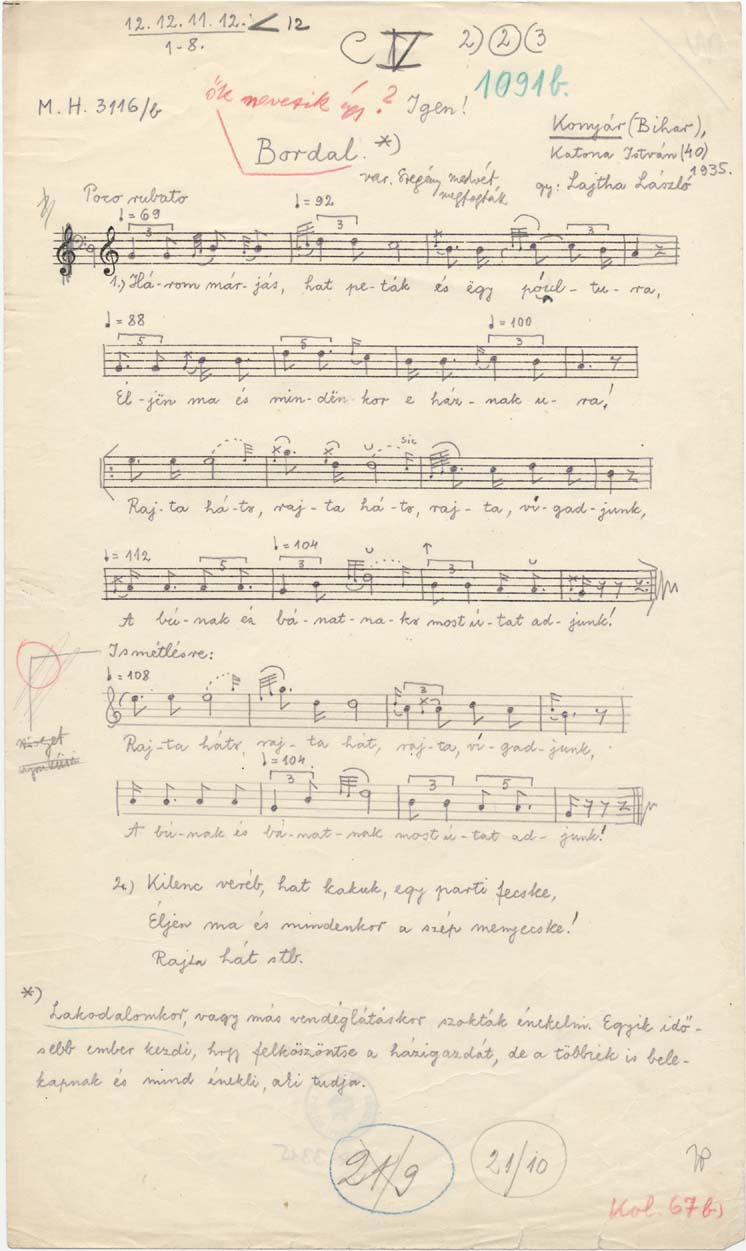 12. 12. 11. 12. < 12
1-8.
C IV 2) 2 (3
1091b.
ők nevezik így? Igen!
M. H. 3116/b
Konyár (Bihar),
Bordal. *)
Katona István (40)
1935.
var. Szegény medvét
megfogták
gy: Lajtha László
Poco rubato
♩ = 69
♩ = 92
3
3
3
1.) Há-rom már-jás, hat pe-ták és ëgy póul-tu-ra,
♩ = 88
♩ = 100
5
5
3
Él-jën ma és min-dën-kor e ház-nak u-ra!
sic
Raj-ta há-to, raj-ta há-to, raj-ta, vi-gad-junk,
♩ = 112
♩ = 104
5
3
3
A bú-nak és bá-nat-na-ko most ú-tat ad-junk!
Ismétlésre:
♩ = 108
3
Raj-ta háto, raj-ta hát, raj-ta, vi-gad-junk,
♩ = 104
3
3
5
A bú-nak és bá-nat-nak most ú-tat ad-junk!
2.) Kilenc veréb, hat kakuk, egy parti fecske,
Éljen ma és mindenkor a szép menyecske!
Rajta hát stb.
*)
Lakodalomkor, vagy más vendéglátáskor szokták énekelni. Egyik idő-
sebb ember kezdi, hogy felköszöntse a házigazdát, de a többiek is bele-
kapnak és mind énekli, aki tudja.
21/9
21/10
Kol. 67b)